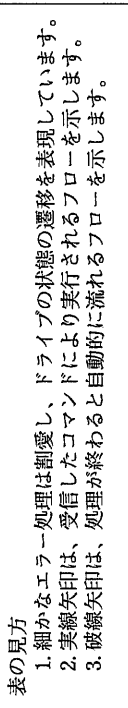 表の見方
1. 細かなエラー処理は割愛し、ドライブの状態の遷移を表現しています。
2. 実線矢印は、受信したコマンドにより実行されるフローを示します。
3. 破線矢印は、処理が終わると自動的に流れるフローを示します。